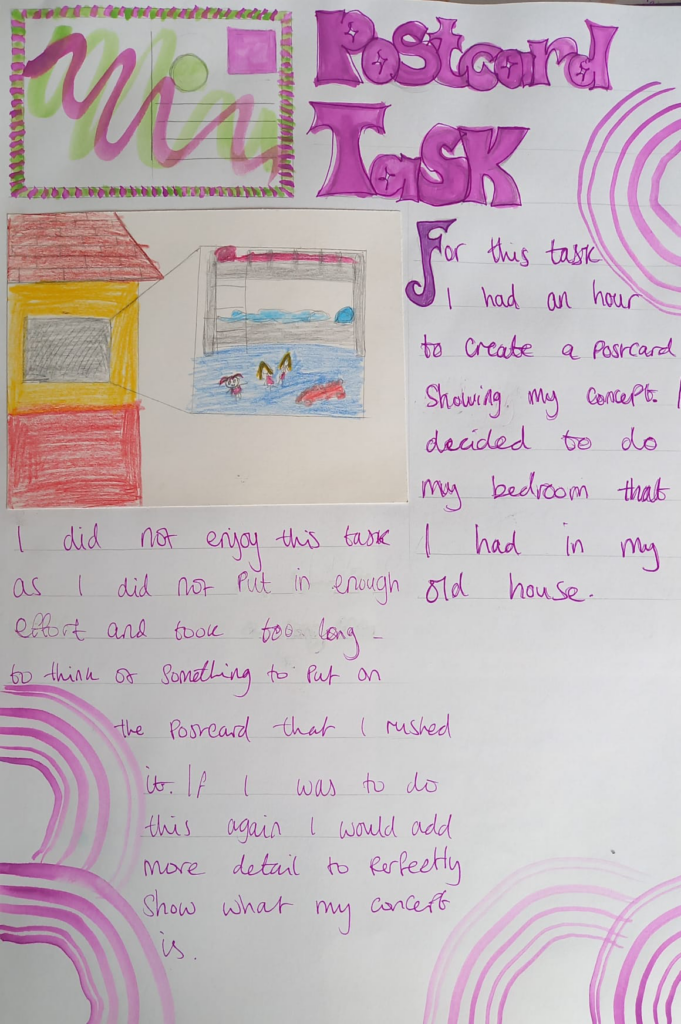 Postcard
Task
For this task
I had an hour
to create a postcard
showing my concept. I
decided to do
my bedroom that
I had in my
old house.
I did not enjoy this task
as I did not put in enough
effort and took too long
to think of something to put on
the postcard that I rushed
it. If I was to do
this again I would add
more detail to perfectly
show what my concept
is.